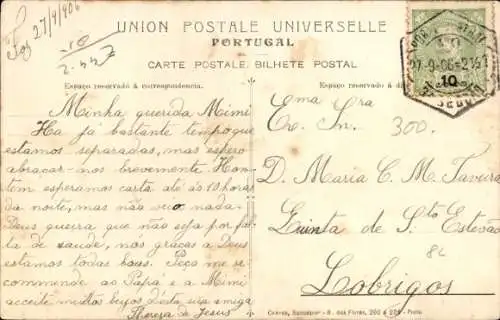 Foz 27/9/906
UNION POSTALE UNIVERSELLE
PORTUGAL
CARTE POSTALE, BILHETE POSTAL
Espaço reservado á correspondencia.
Espaço reservado á
27-9-06-2
10
300.
Minha querida Mimi
Ha já bastante tempo que
estamos separadas, mas espero
abraçar-nos brevemente. Hon-
tem esperamos carta até ás 10 horas
da noite, mas não veio nada.
Deus queira que não seja por fal-
ta de saude, nós graças a Deus
estamos todas boas. Peço me re-
commende ao Papá e a Mimi
acceite muitos beijos d'esta sua amiga
Thereza de Jesus
Ema Sra
D. Maria C. M. Taveira
Quinta de Sto Estevão
Lobrigos
82
R. das Flores, 200 a 208 - Porto